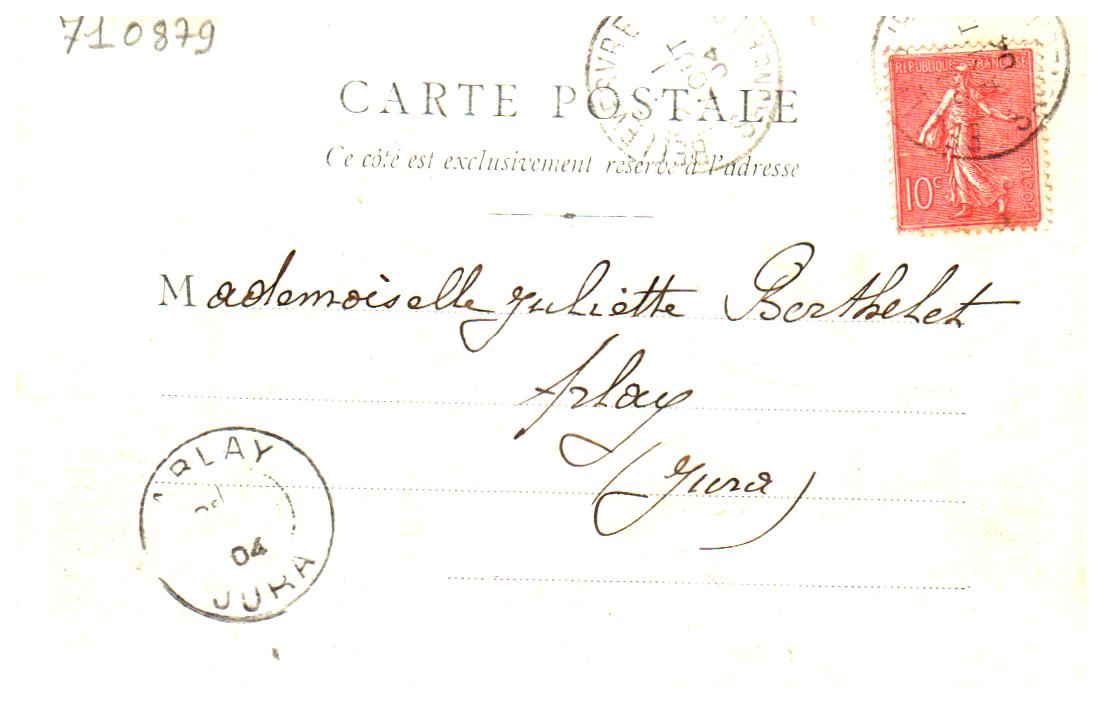 710879
CARTE POSTALE
Ce côté est exclusivement réservé à l'adresse
REPUBLIQUE FRANÇAISE
10c
POSTES
Mademoiselle Juliette Berthelet
Arlay
(Jura)
ARLAY
04
JURA